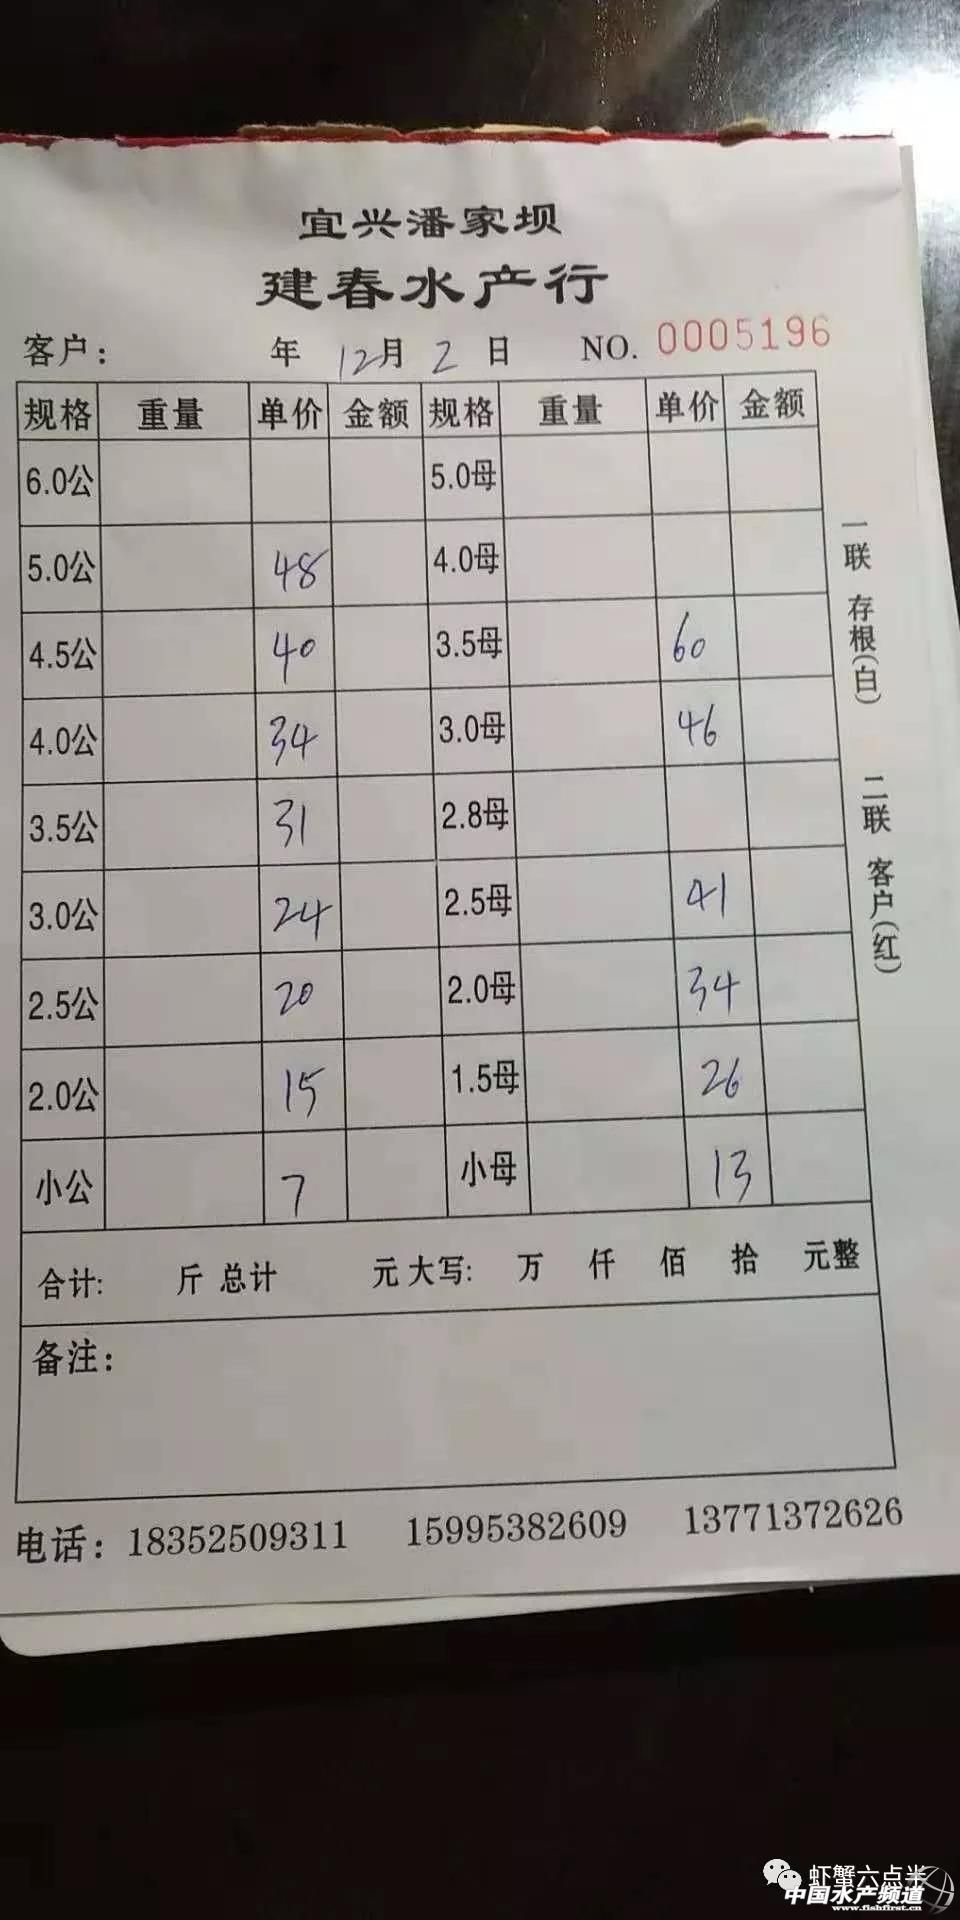 宜兴潘家坝
建春水产行
客户： 年 12月 2 日 NO. 0005196
规格 重量 单价 金额 规格 重量 单价 金额
6.0公 5.0母
5.0公 48 4.0母
4.5公 40 3.5母 60
4.0公 34 3.0母 46
3.5公 31 2.8母
3.0公 24 2.5母 41
2.5公 20 2.0母 34
2.0公 15 1.5母 26
小公 7 小母 13
合计: 斤 总计 元 大写: 万 仟 佰 拾 元整
备注：
电话：18352509311 15995382609 13771372626
一联 存根(白) 二联 客户(红)
虾蟹六点半
中国水产频道
www.fishfirst.cn